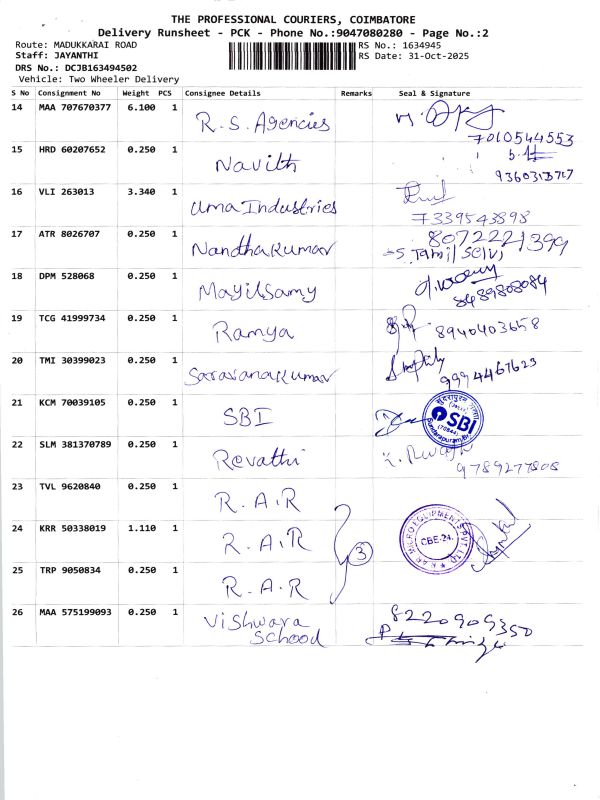 THE PROFESSIONAL COURIERS, COIMBATORE
Delivery Runsheet - PCK - Phone No.:9047080280 - Page No.:2
Route: MADUKKARAI ROAD RS No.: 1634945
Staff: JAYANTHI RS Date: 31-Oct-2025
DRS No.: DCJB163494502
Vehicle: Two Wheeler Delivery
S No Consignment No Weight PCS Consignee Details Remarks Seal & Signature
14 MAA 707670377 6.100 1 R.S. Agencies
7010544553
15 HRD 60207652 0.250 1 Navith
16 VLI 263013 3.340 1 Uma Industries
7339543898
17 ATR 8026707 0.250 1 Nandhakumar 8072221399
S. Tamil Selvi
18 DPM 528068 0.250 1 Mayilsamy
8489808084
19 TCG 41999734 0.250 1 Ramya 8940403658
20 TMI 30399023 0.250 1 Saravanakumar 9994467623
21 KCM 70039105 0.250 1 SBI SBI
22 SLM 381370789 0.250 1 Revathi
9789277808
23 TVL 9620840 0.250 1 R.A.R
24 KRR 50338019 1.110 1 R.A.R 3 CBE-24.
25 TRP 9050834 0.250 1 R.A.R
26 MAA 575199093 0.250 1 Vishwara 8220909350
School